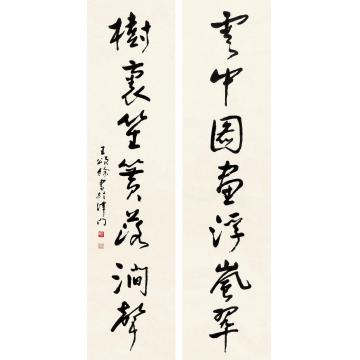 雲中圖畫浮嵐翠
樹裏笙簧落澗聲
王頌餘書於津門